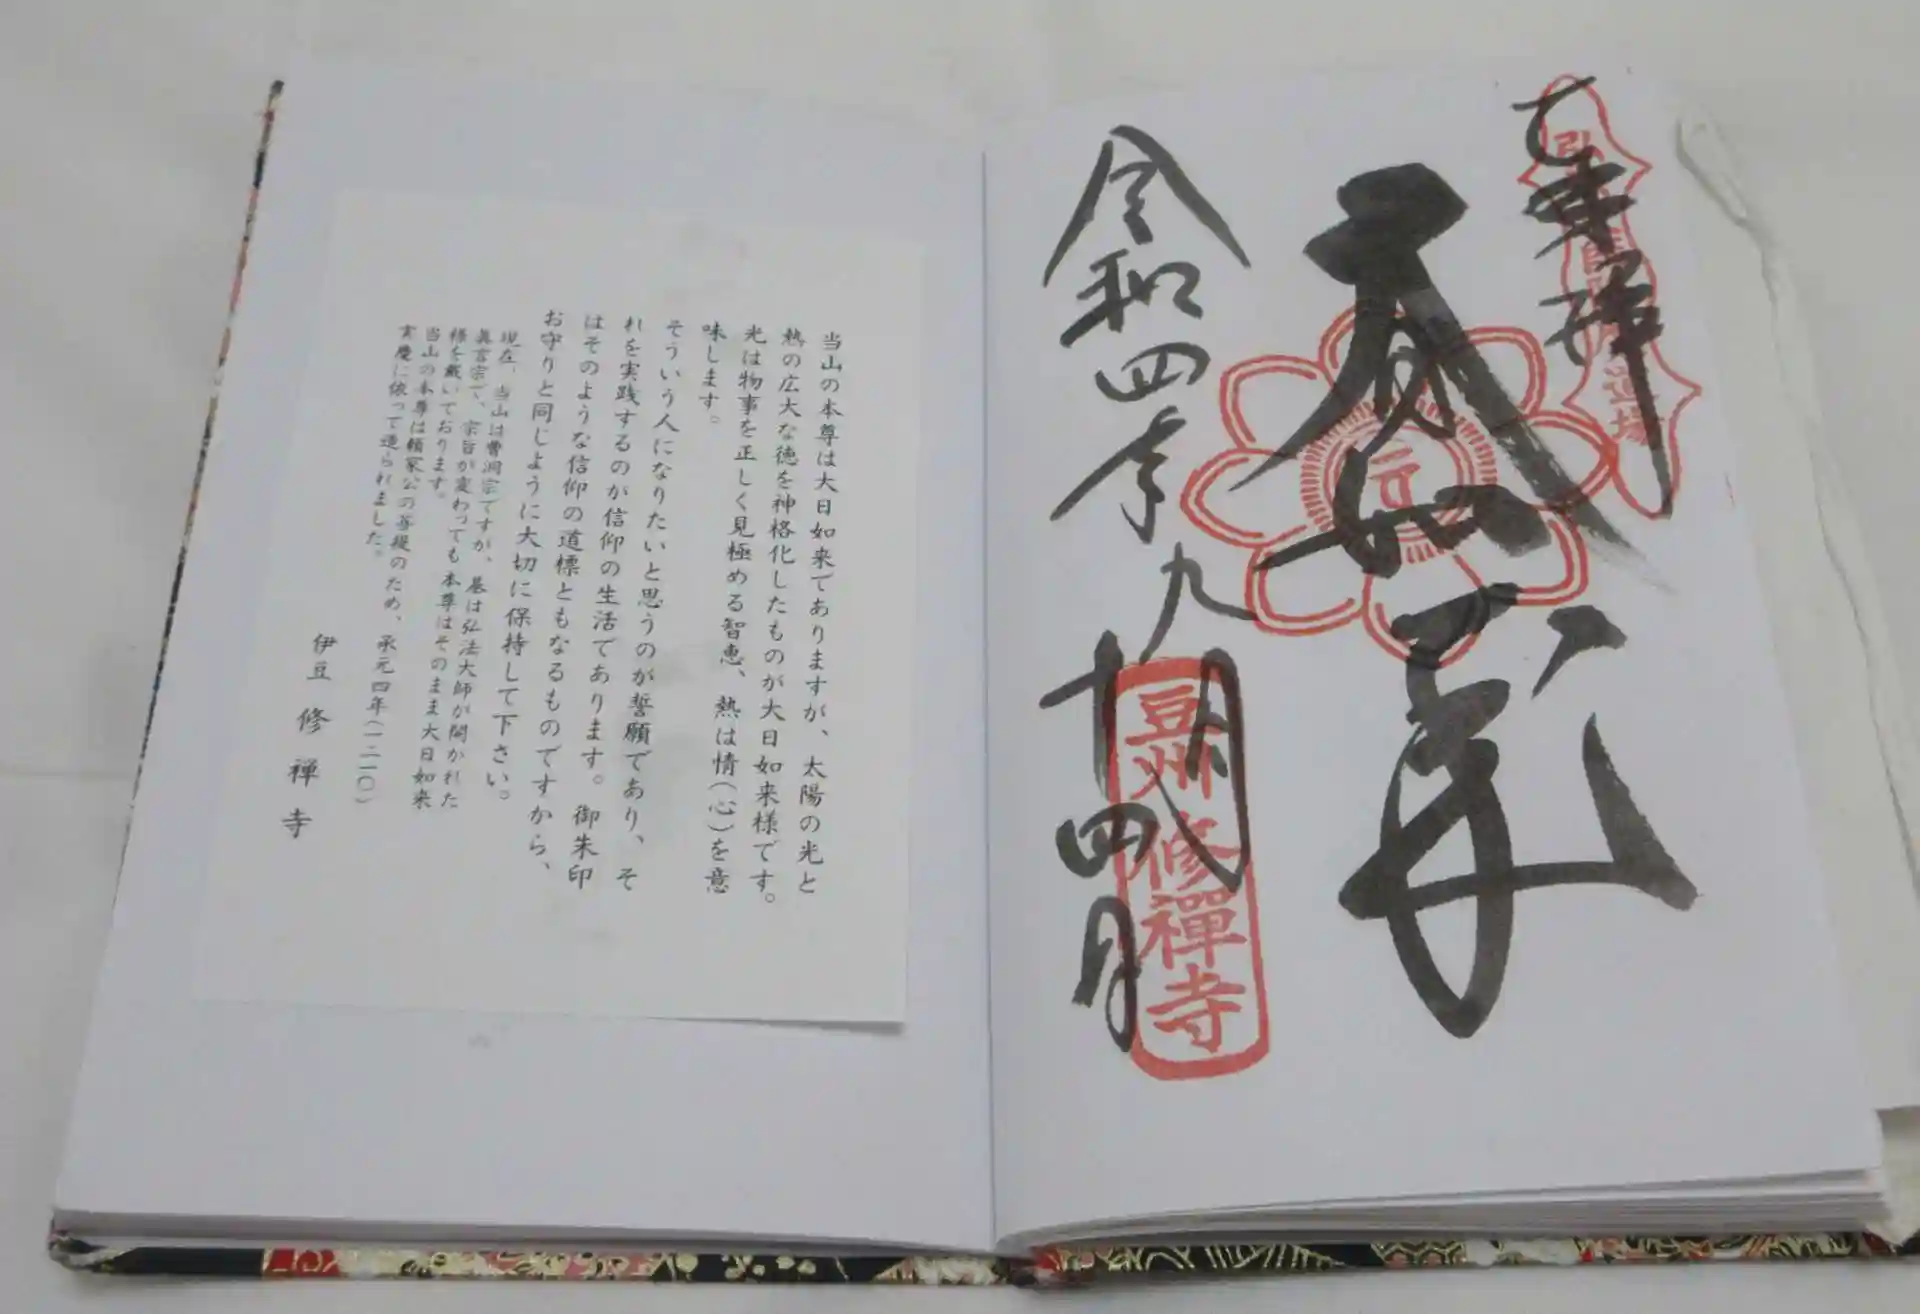 奉拝
道場
大日如来
令和四年九月十四日
豆州修禪寺
当山の本尊は大日如来でありますが、太陽の光と
熱の広大な徳を神格化したものが大日如来様です。
光は物事を正しく見極める智恵、熱は情(心)を意
味します。
そういう人になりたいと思うのが誓願であり、そ
れを実践するのが信仰の生活であります。御朱印
はそのような信仰の道標ともなるものですから、
お守りと同じように大切に保持して下さい。
現在、当山は曹洞宗ですが、基は弘法大師が開かれた
眞言宗で、宗旨が変わっても本尊はそのまま大日如来
様を戴いております。
当山の本尊は頼家公の菩提のため、承元四年(一二一〇)
実慶に依って造られました。
伊豆 修禅寺